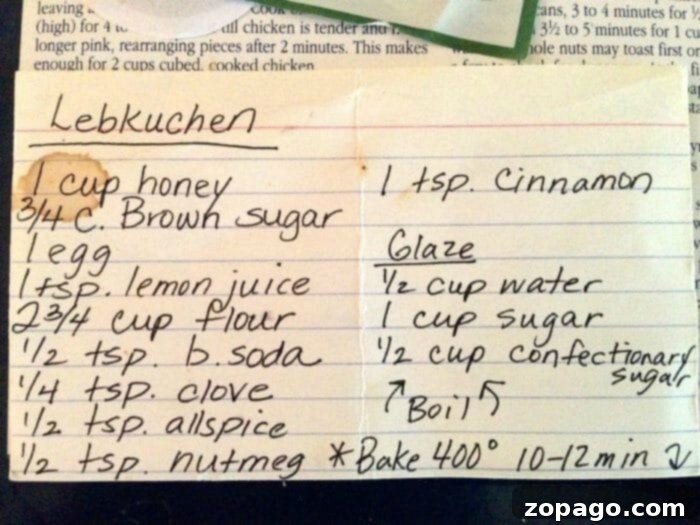 leaving
(high) for 4
chicken is tender and
longer pink, rearranging pieces after 2 minutes. This makes
enough for 2 cups cubed, cooked chicken.
cans, 3 to 4 minutes for
3½ to 5 minutes for 1 cu
nuts may toast first or
Lebkuchen
1 cup honey
3/4 c. Brown sugar
1 egg
1 tsp. lemon juice
2 3/4 cup flour
1/2 tsp. b. soda
1/4 tsp. clove
1/2 tsp. allspice
1/2 tsp. nutmeg
1 tsp. Cinnamon
Glaze
1/2 cup water
1 cup sugar
1/2 cup confectionary
sugar
↗Boil↖
*Bake 400° 10-12 min ↓
zopago.com